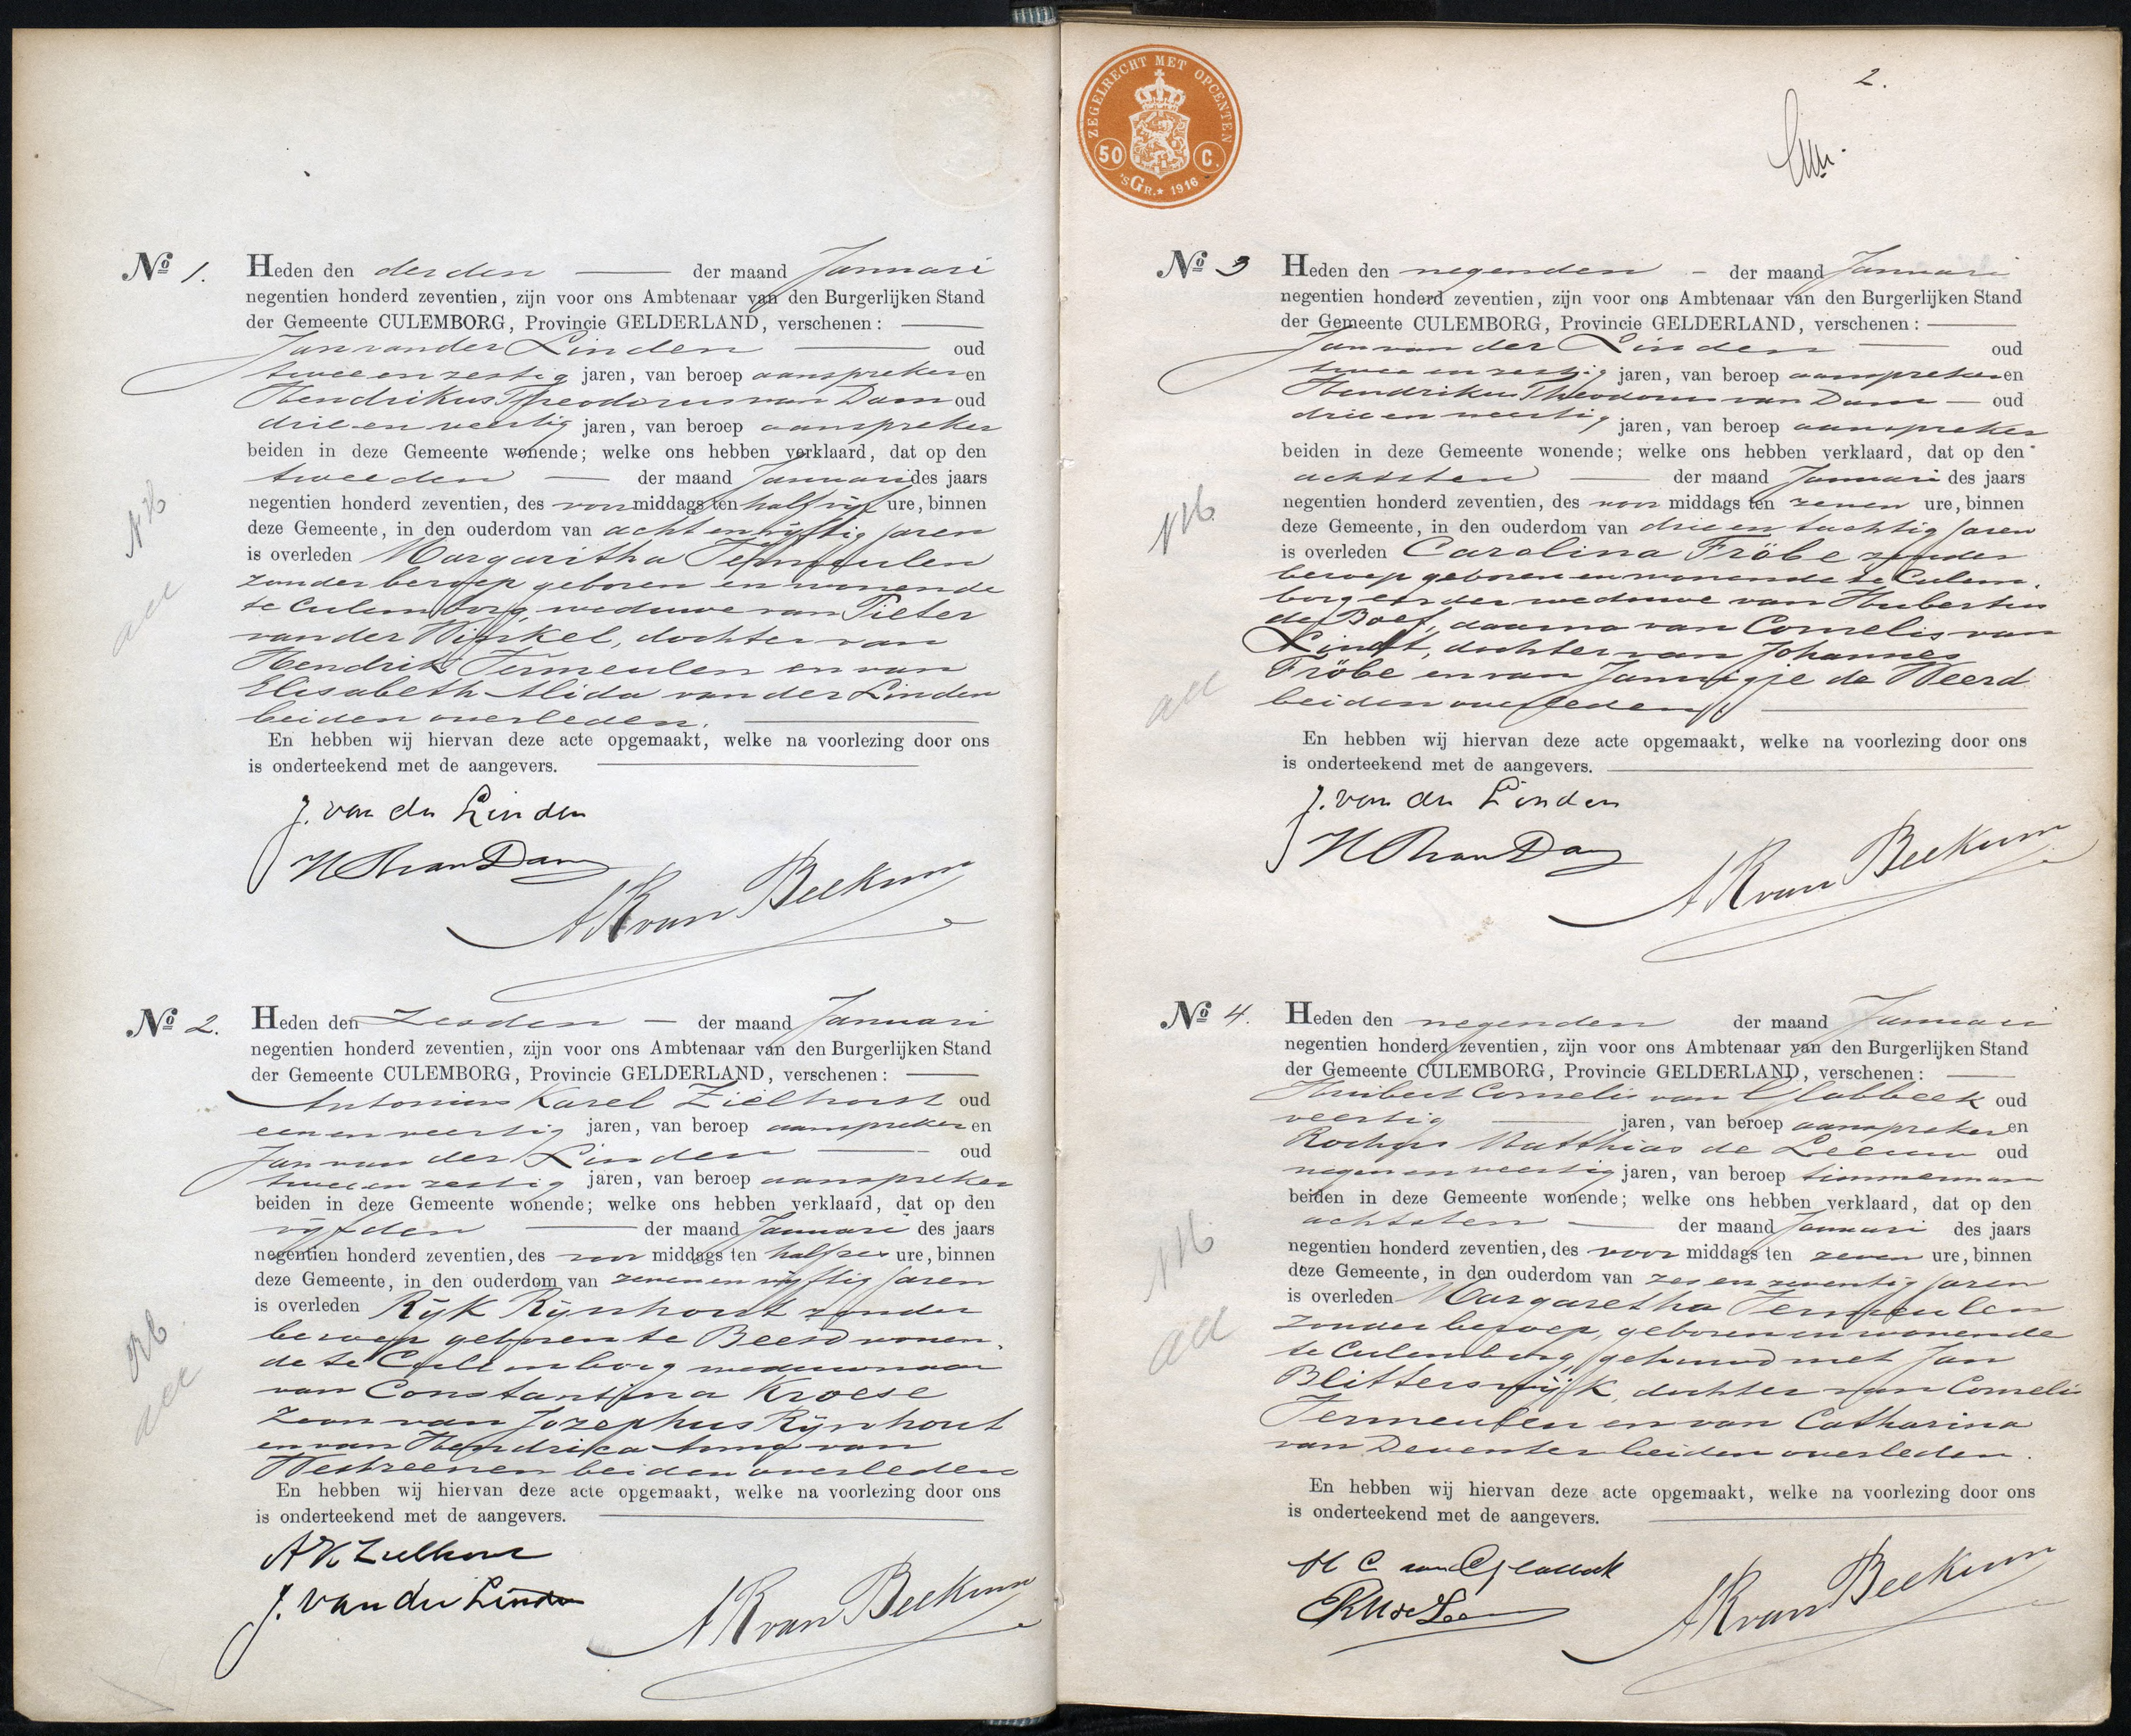 No 1. Heden den derden der maand Januari
negentien honderd zeventien, zijn voor ons Ambtenaar van den Burgerlijken Stand
der Gemeente CULEMBORG, Provincie GELDERLAND, verschenen:
Jan van der Linden oud
twee en zestig jaren, van beroep aanspreker en
Hendrikus Theodorus van Dam oud
drie en veertig jaren, van beroep aanspreker
beiden in deze Gemeente wonende; welke ons hebben verklaard, dat op den
tweeden der maand Januari des jaars
negentien honderd zeventien, des voormiddags ten half vijf ure, binnen
deze Gemeente, in den ouderdom van acht en vijftig jaren
is overleden Margaritha Termeulen
zonder beroep geboren en wonende
te Culemborg, weduwe van Pieter
van der Winkel, dochter van
Hendrik Termeulen en van
Elisabeth Alida van der Linden
beiden overleden.
En hebben wij hiervan deze acte opgemaakt, welke na voorlezing door ons
is onderteekend met de aangevers.
J. van der Linden
H Th van Dam
A K van Beekum
No 2. Heden den zesden der maand Januari
negentien honderd zeventien, zijn voor ons Ambtenaar van den Burgerlijken Stand
der Gemeente CULEMBORG, Provincie GELDERLAND, verschenen:
Antonius Karel Zielhorst oud
een en veertig jaren, van beroep aanspreker en
Jan van der Linden oud
twee en zestig jaren, van beroep aanspreker
beiden in deze Gemeente wonende; welke ons hebben verklaard, dat op den
vijfden der maand Januari des jaars
negentien honderd zeventien, des voor middags ten half zes ure, binnen
deze Gemeente, in den ouderdom van zeven en vijftig jaren
is overleden Rijk Rijnhout zonder
beroep geboren te Beesd wonen-
de te Culemborg weduwnaar
van Constantina Kroese
zoon van Jozephus Rijnhout
en van Hendrica Anna van
Westreenen beiden overleden
En hebben wij hiervan deze acte opgemaakt, welke na voorlezing door ons
is onderteekend met de aangevers.
A K Zielhorst
J. van der Linden
A K van Beekum
ZEGELRECHT MET OPCENTEN
50 C.
'sGR. 1916
2.
No 3 Heden den negenden der maand Januari
negentien honderd zeventien, zijn voor ons Ambtenaar van den Burgerlijken Stand
der Gemeente CULEMBORG, Provincie GELDERLAND, verschenen:
Jan van der Linden oud
twee en zestig jaren, van beroep aanspreker en
Hendrikus Theodorus van Dam oud
drie en veertig jaren, van beroep aanspreker
beiden in deze Gemeente wonende; welke ons hebben verklaard, dat op den
achtsten der maand Januari des jaars
negentien honderd zeventien, des voor middags ten zeven ure, binnen
deze Gemeente, in den ouderdom van drie en tachtig jaren
is overleden Carolina Fröbe zonder
beroep geboren en wonende te Culem-
borg eerder weduwe van Hubertus
de Boef, daarna van Cornelis van
Lindt, dochter van Johannes
Fröbe en van Jannigje de Weerd
beiden overleden
En hebben wij hiervan deze acte opgemaakt, welke na voorlezing door ons
is onderteekend met de aangevers.
J. van der Linden
H Th van Dam
A K van Beekum
No 4. Heden den negenden der maand Januari
negentien honderd zeventien, zijn voor ons Ambtenaar van den Burgerlijken Stand
der Gemeente CULEMBORG, Provincie GELDERLAND, verschenen:
Huibert Cornelis van Glabbeek oud
veertig jaren, van beroep aanspreker en
Matthias de Leeuw oud
negen en veertig jaren, van beroep timmerman
beiden in deze Gemeente wonende; welke ons hebben verklaard, dat op den
achtsten der maand Januari des jaars
negentien honderd zeventien, des voor middags ten zeven ure, binnen
deze Gemeente, in den ouderdom van zes en zeventig jaren
is overleden Margaretha Termeulen
zonder beroep, geboren en wonende
te Culemborg, gehuwd met Jan
Blitterswijk, dochter van Cornelis
Termeulen en van Catharina
van Deventer beiden overleden.
En hebben wij hiervan deze acte opgemaakt, welke na voorlezing door ons
is onderteekend met de aangevers.
H C van Glabbeek
R M de Leeuw
A K van Beekum